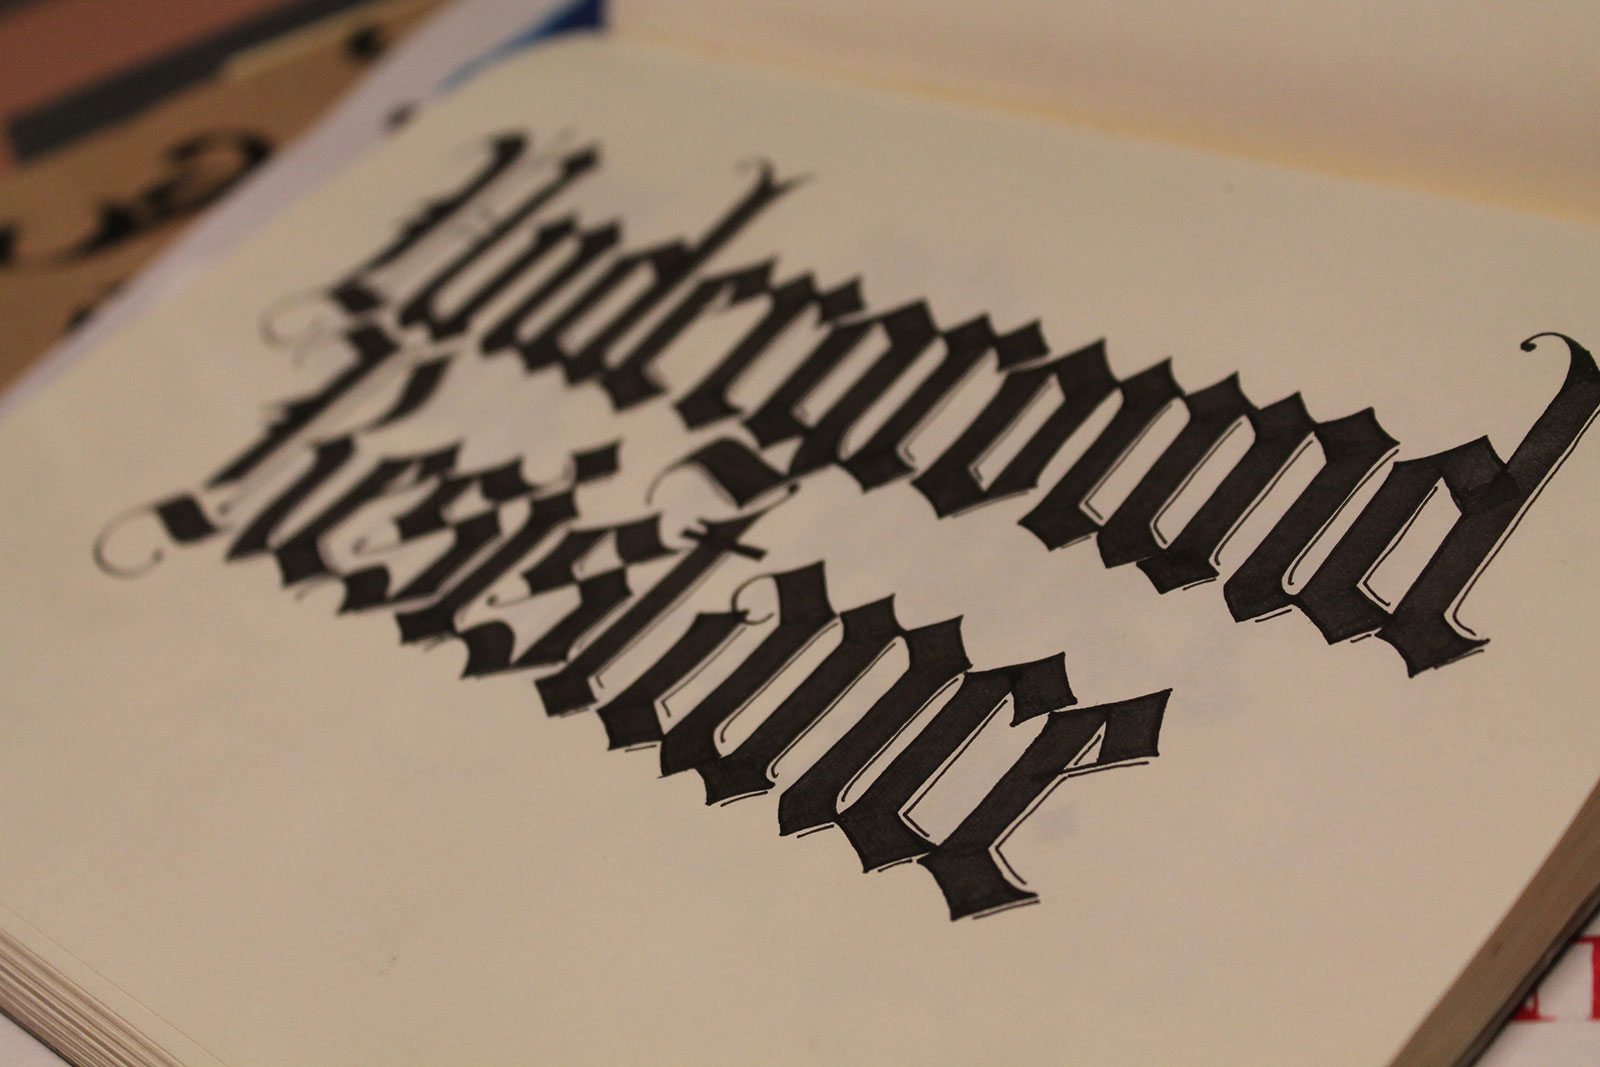 Underground
Resistance